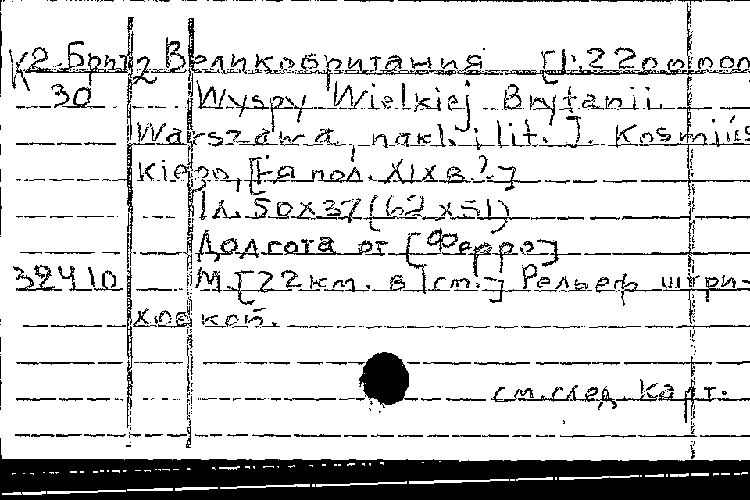 К2-Брит2 Великобритания [1:2200000
30 Wyspy Wielkiej Brytanii.
Warszawa, nakl. i lit. J. Kosmińs
kiego, [I-я пол. XIX в.?]
1 л. 50х37 (62х51)
Долгота от [Ферро]
32410 М. [22 км. в 1 см.] Рельеф штри-
ховкой.
см. след. карт.